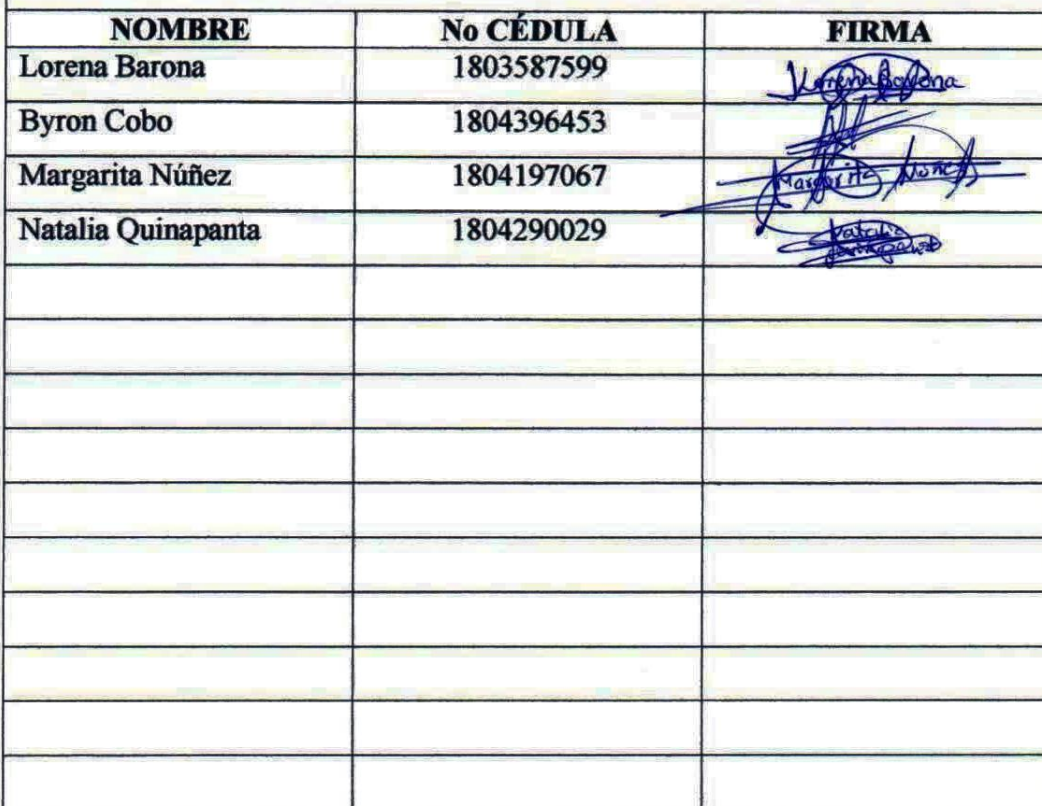 NOMBRE No CÉDULA FIRMA
Lorena Barona 1803587599 Lorena Barona
Byron Cobo 1804396453
Margarita Núñez 1804197067 Margarita Núñez
Natalia Quinapanta 1804290029 Natalia Quinapanta